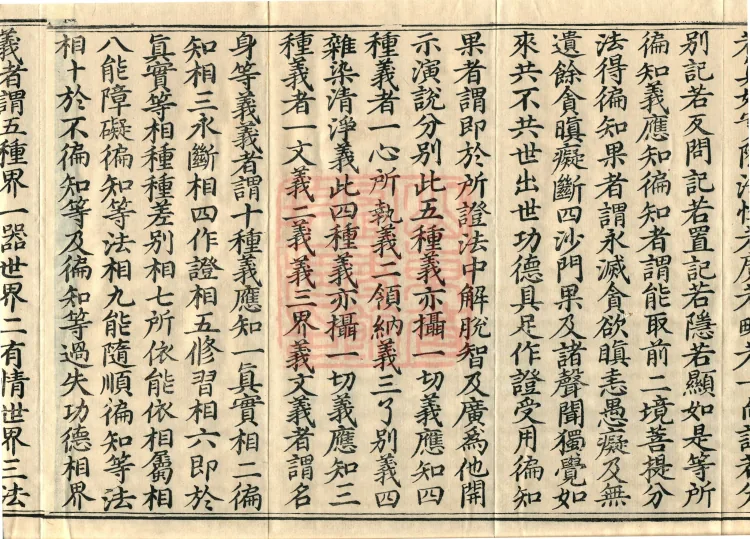 別記若反問記若置記若隱若顯如是等所
徧知義應知徧知者謂能取前二境菩提分
法得徧知果者謂永滅貪欲瞋恚愚癡及無
遺餘貪瞋癡斷四沙門果及諸聲聞獨覺如
來共不共世出世功德具足作證受用徧知
果者謂即於所證法中解脫智及廣爲他開
示演說分別此五種義亦攝一切義應知四
種義者一心所執義二領納義三了別義四
雜染清淨義此四種義亦攝一切義應知三
種義者一文義二義義三界義文義者謂名
身等義義者謂十種義應知一眞實相二徧
知相三永斷相四作證相五修習相六即於
眞實等相種種差別相七所依能依相屬相
八能障礙徧知等法相九能隨順徧知等法
相十於不徧知等及徧知等過失功德相界
義者謂五種界一器世界二有情世界三法